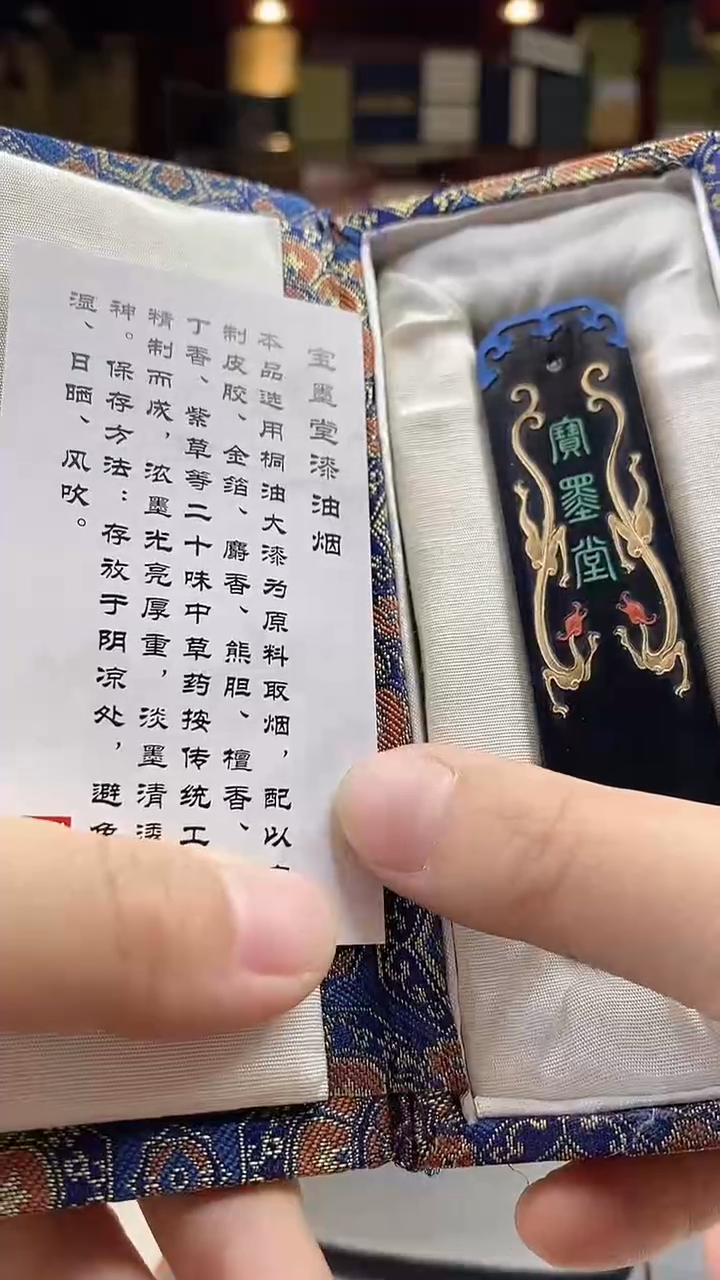 宝墨堂漆油烟
本品选用桐油大漆为原料取烟，配以
制皮胶、金箔、麝香、熊胆、檀香、
丁香、紫草等二十味中草药按传统工
精制而成，浓墨光亮厚重，淡墨清透
神。保存方法：存放于阴凉处，避免
湿、日晒、风吹。
寶墨堂